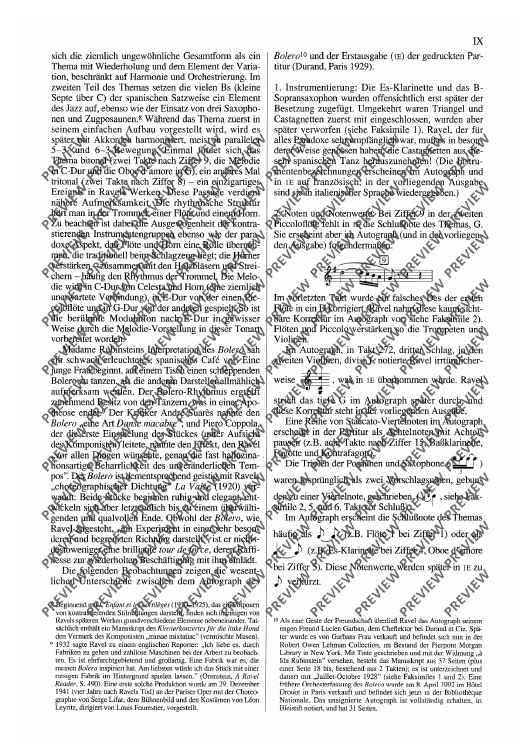 IX
sich die ziemlich ungewöhnliche Gesamtform als ein
Thema mit Wiederholung und dem Element der Varia-
tion, beschränkt auf Harmonie und Orchestrierung. Im
zweiten Teil des Themas setzen die vielen Bs (kleine
Septe über C) der spanischen Satzweise ein Element
des Jazz auf, ebenso wie der Einsatz von drei Saxopho-
nen und Zugposaunen.⁸ Während das Thema zuerst in
seinem einfachen Aufbau vorgestellt wird, wird es
später mit Akkorden harmonisiert, meist in paralleler
5–3- und 6–3-Bewegung. Einmal findet sich das
Thema bitonal (zwei Takte nach Ziffer 9, die Melodie
in C-Dur und die Oboe d'amore in G), ein anderes Mal
tritonal (zwei Takte nach Ziffer 8) – ein einzigartiges
Ereignis in Ravels Werken. Diese Passage verdient
nähere Aufmerksamkeit. Die rhythmische Struktur
hört man in der Trommel, einer Flöte und einem Horn.
Zu beachten ist dabei die Ausgewogenheit der kontra-
stierenden Instrumentengruppen, ebenso wie der para-
doxe Aspekt, daß Flöte und Horn eine Rolle überneh-
men, die traditionell beim Schlagzeug liegt; die Hörner
verstärken – zusammen mit den Holzbläsern und Strei-
chern – häufig den Rhythmus der Trommel. Die Melo-
die wird in C-Dur von Celesta und Horn (eine ziemlich
unerwartete Verbindung), in E-Dur von der einen Pic-
coloflöte und in G-Dur von der anderen gespielt. So ist
die berühmte Modulation nach E-Dur in gewisser
Weise durch die Melodie-Vorstellung in dieser Tonart
vorbereitet worden.
Madame Rubinsteins Interpretation des Bolero sah
ein schwach erleuchtetes spanisches Café vor. Eine
junge Frau beginnt, auf einem Tisch einen schleppenden
Bolero zu tanzen, als die anderen Darsteller allmählich
aufmerksam werden. Der Bolero-Rhythmus ergreift
zunehmend Besitz von den Tänzern, was in einer Apo-
theose endet.⁹ Der Kritiker André Suarès nannte den
Bolero „eine Art Danse macabre“, und Piero Coppola,
der die erste Einspielung des Stückes (unter Aufsicht
des Komponisten) leitete, nannte den Effekt, den Ravel
„vor allen Dingen wünschte, genau die fast halluzina-
tionsartige Beharrlichkeit des unveränderlichen Tem-
pos“. Der Bolero ist dementsprechend geistig mit Ravels
„choreographischer Dichtung“ La Valse (1920) ver-
wandt: Beide Stücke beginnen ruhig und elegant, ent-
wickeln sich aber letztendlich bis zu einem überwälti-
genden und qualvollen Ende. Obwohl der Bolero, wie
Ravel dargestellt, „ein Experiment in einer sehr beson-
deren und begrenzten Richtung darstellt“, ist er nichts-
destoweniger eine brillante tour de force, deren Raffi-
nesse zur wiederholten Beschäftigung mit ihm einlädt.
Die folgenden Beobachtungen zeigen die wesent-
lichen Unterschiede zwischen dem Autograph des
⁸ Beginnend mit L'Enfant et les Sortilèges (1920–1925), das ein Tanzen
von kontrastierenden Stilrichtungen darstellt, finden sich Mischungen von
Ravels späteren Werken grundverschiedene Elemente nebeneinander. Tat-
sächlich enthält ein Manuskript des Klavierkonzertes für die linke Hand
den Vermerk des Komponisten „musae mixtatiae“ (vermischte Musen).
⁹ 1932 sagte Ravel zu einem englischen Reporter: „Ich liebe es, durch
Fabriken zu gehen und zahllose Maschinen bei der Arbeit zu beobach-
ten. Es ist ehrfurchtgebietend und großartig. Eine Fabrik war es, die
meinen Bolero inspiriert hat. Am liebsten würde ich das Stück mit einer
riesigen Fabrik im Hintergrund spielen lassen.“ (Orenstein, A Ravel
Reader, S. 490). Eine erste solche Produktion wurde am 29. Dezember
1941 (vier Jahre nach Ravels Tod) an der Pariser Oper mit der Choreo-
graphie von Serge Lifar, dem Bühnenbild und den Kostümen von Léon
Leyritz, dirigiert von Louis Fourestier, vorgestellt.
Bolero¹⁰ und der Erstausgabe (IE) der gedruckten Par-
titur (Durand, Paris 1929).
1. Instrumentierung: Die Es-Klarinette und das B-
Sopransaxophon wurden offensichtlich erst später der
Besetzung zugefügt. Umgekehrt waren Triangel und
Castagnetten zuerst mit eingeschlossen, wurden aber
später verworfen (siehe Faksimile 1). Ravel, der für
alles Paradoxe sehr empfänglich war, muß es in beson-
derer Weise genossen haben, die Castagnetten aus die-
sem spanischen Tanz herauszunehmen! (Die Instru-
mentenbezeichnungen erscheinen im Autograph und
in IE auf französisch; in der vorliegenden Ausgabe
sind sie in italienischer Sprache wiedergegeben.)
2. Noten und Notenwerte: Bei Ziffer 9 in der zweiten
Piccoloflöte fehlt in IE die Schlußnote des Themas, G.
Sie erscheint aber im Autograph (und in der vorliegen-
den Ausgabe) folgendermaßen:
9
Im vorletzten Takt wurde ein falsches Des der ersten
Flöte in ein B korrigiert (Ravel nahm diese kaum sicht-
bare Korrektur im Autograph vor, siehe Faksimile 2).
Flöten und Piccolo verstärken so die Trompeten und
Violinen.
Im Autograph, in Takt 272, dritter Schlag, in den
zweiten Violinen, divisi I, notierte Ravel irrtümlicher-
weise , was in IE übernommen wurde. Ravel
strich das tiefe G im Autograph später durch, und
diese Korrektur steht in der vorliegenden Ausgabe.
Eine Reihe von Staccato-Viertelnoten im Autograph
erscheint in der Partitur als Achtelnoten mit Achtel-
pausen (z.B. acht Takte nach Ziffer 15, Baßklarinette,
Fagotte und Kontrafagott).
Die Triolen der Posaunen und Saxophone ( )
waren ursprünglich als zwei Vorschlagsnoten, gebun-
den zu einer Viertelnote, geschrieben, ( , siehe Fak-
simile 2, 5. und 6. Takt vor Schluß).
Im Autograph erscheint die Schlußnote des Themas
häufig als (z.B. Flöte 1 bei Ziffer 1) oder als
(z.B. Es-Klarinette bei Ziffer 3, Oboe d'amore
bei Ziffer 5). Diese Notenwerte werden später in IE zu
verkürzt.
¹⁰ Als eine Geste der Freundschaft überließ Ravel das Autograph seinem
engen Freund Lucien Garban, dem Cheflektor bei Durand et Cie. Spä-
ter wurde es von Garbans Frau verkauft und befindet sich nun in der
Robert Owen Lehman Collection, im Bestand der Pierpont Morgan
Library in New York. Mit Tinte geschrieben und mit der Widmung „à
Ida Rubinstein“ versehen, besteht das Manuskript aus 37 Seiten (plus
einer Seite 18 bis, bestehend aus 2 Takten); es ist unterzeichnet und
datiert mit „Juillet-Octobre 1928“ (siehe Faksimiles 1 und 2). Eine
frühere Orchesterfassung des Bolero wurde am 8. April 1992 im Hôtel
Drouot in Paris verkauft und befindet sich jetzt in der Bibliothèque
Nationale. Das unsignierte Autograph ist vollständig erhalten, in
Bleistift notiert, und hat 31 Seiten.